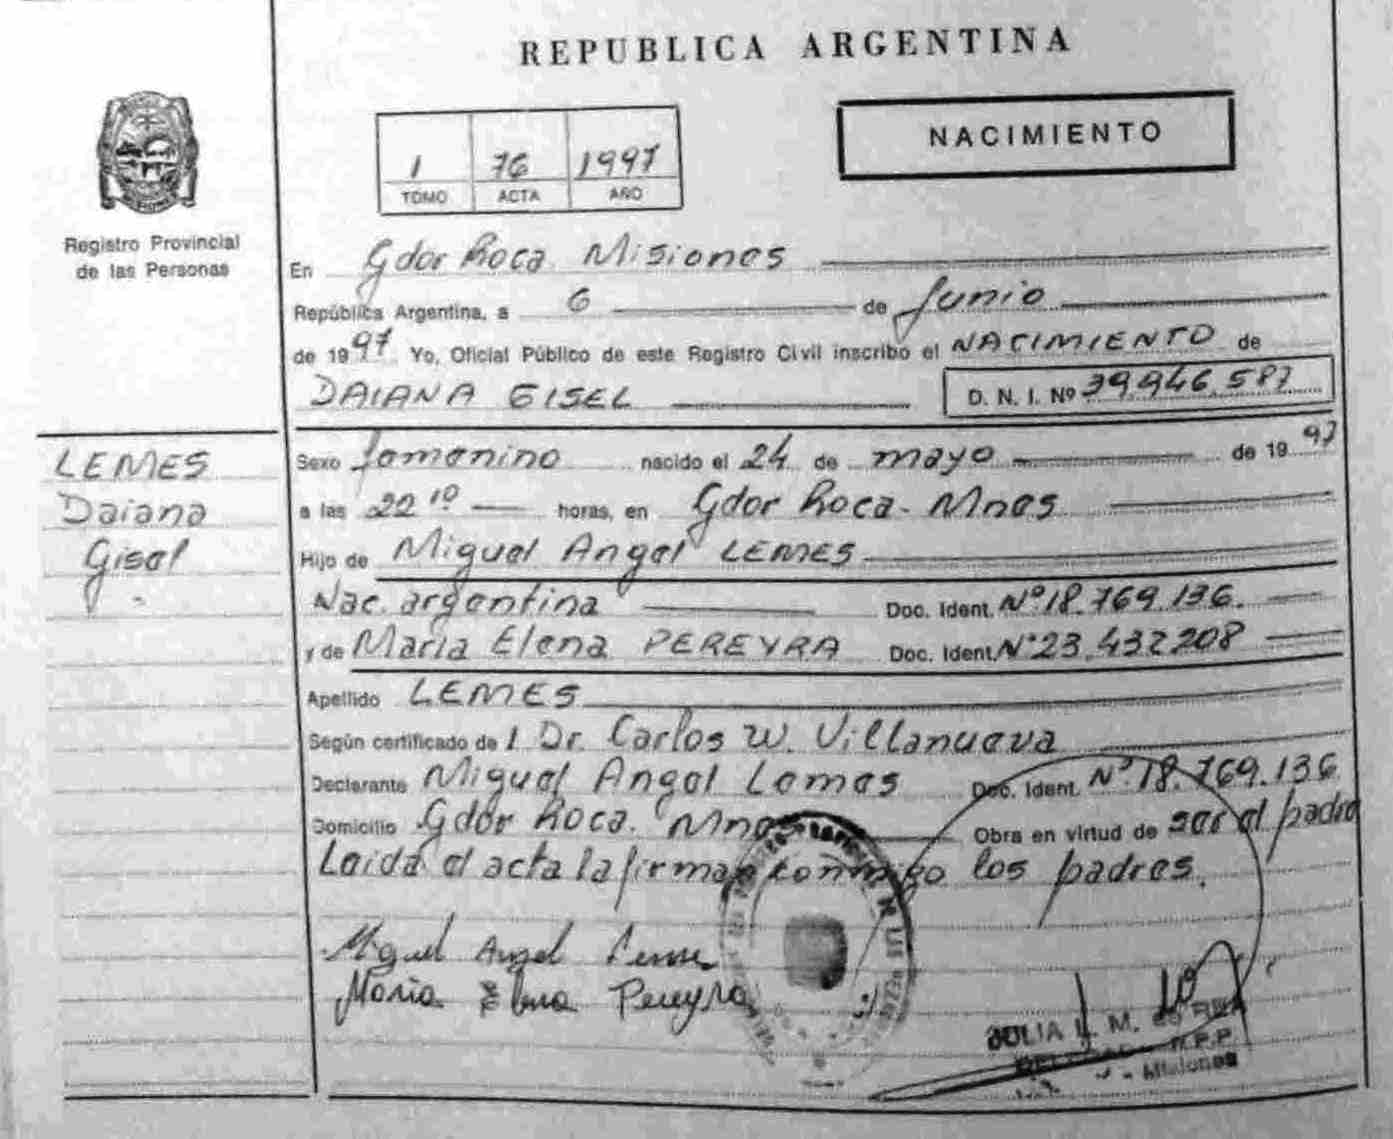 REPUBLICA ARGENTINA
Registro Provincial
de las Personas
1 76 1997
TOMO ACTA AÑO
NACIMIENTO
En Gdor Roca Misiones
República Argentina, a 6 de Junio
de 1997 Yo, Oficial Público de este Registro Civil inscribo el NACIMIENTO de
DAIANA GISEL D. N. I. Nº 39.946.587
LEMES
Daiana
Gisel
Sexo femenino nacido el 24 de mayo de 1997
a las 22 10 horas, en Gdor Roca - Mnes
Hijo de Miguel Angel LEMES
Nac. argentina Doc. Ident. Nº 18.769.136.
y de Maria Elena PEREYRA Doc. Ident. Nº 23.432.208
Apellido LEMES
Según certificado de l Dr. Carlos W. Villanueva
Declarante Miguel Angel Lemes Doc. Ident. Nº 18.769.136
Domicilio Gdor Roca. Mnes Obra en virtud de ser el padre
Leida el acta la firman conmigo los padres.
Miguel Angel Lemes
Maria Elena Pereyra
JULIA L. M. de
R.P.P.
- Misiones